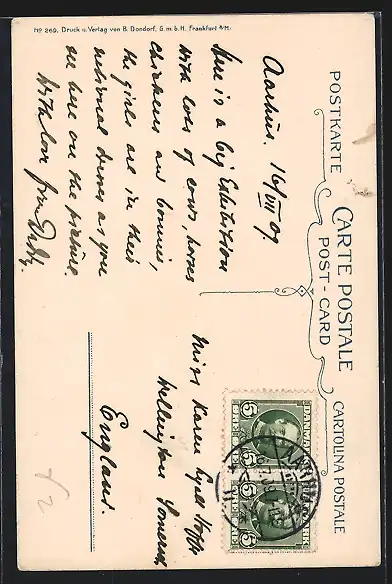 No 369. Druck u. Verlag von B. Dondorf, G.m.b.H. Frankfurt a/M.
POSTKARTE
CARTE POSTALE
POST-CARD
CARTOLINA POSTALE
Aarhus. 16/VIII 09.
Here is a big Exhibition
with lots of cows, horses
chickens and bunnies,
the girls are in their
national dress as you
see here on the picture.
With love from Daddy.
Miss Karen
Wellington Somerset
England.
DANMARK
5 ØRE 5
5 ØRE 5
AARHUS
12